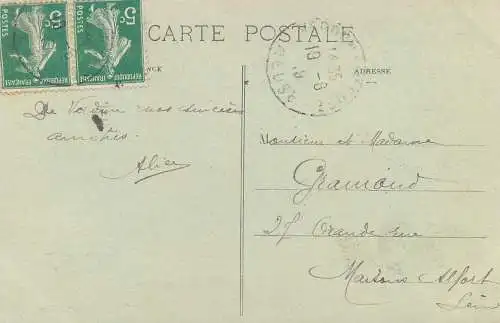 5c 5c
POSTES POSTES
REPUBLIQUE FRANÇAISE REPUBLIQUE FRANÇAISE
CARTE POSTALE
ADRESSE
De Verdun nos sincères
amitiés.
Alice
Monsieur et Madame
Gramond
27 Grande rue
Maisons Alfort
Seine